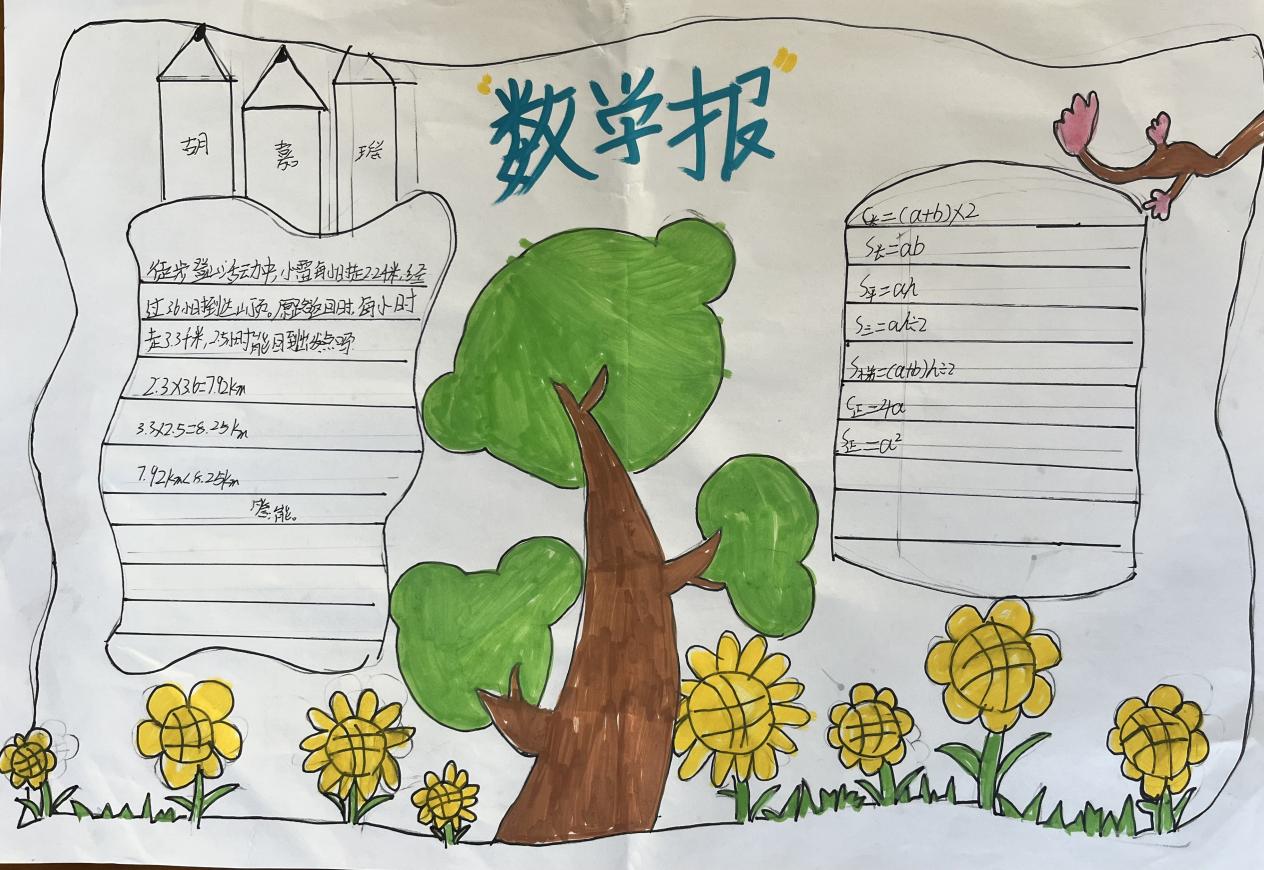 "数学报"
胡 嘉 瑶
徒步登山活动中,小雪每小时走2.2千米,经
过3.6小时到达山顶。原路返回时,每小时
走3.3千米,2.5小时能回到出发点吗?
2.3×3.6=7.92km
3.3×2.5=8.25km
7.92km<8.25km
答:能。
C长=(a+b)×2
S长=ab
S平=ah
S三=ah÷2
S梯=(a+b)h÷2
C正=4a
S正=a²